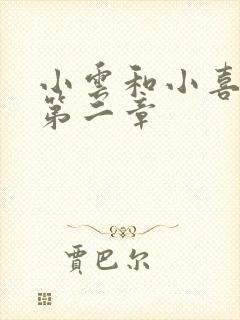 小雪和小喜
第二章
賈巴尔